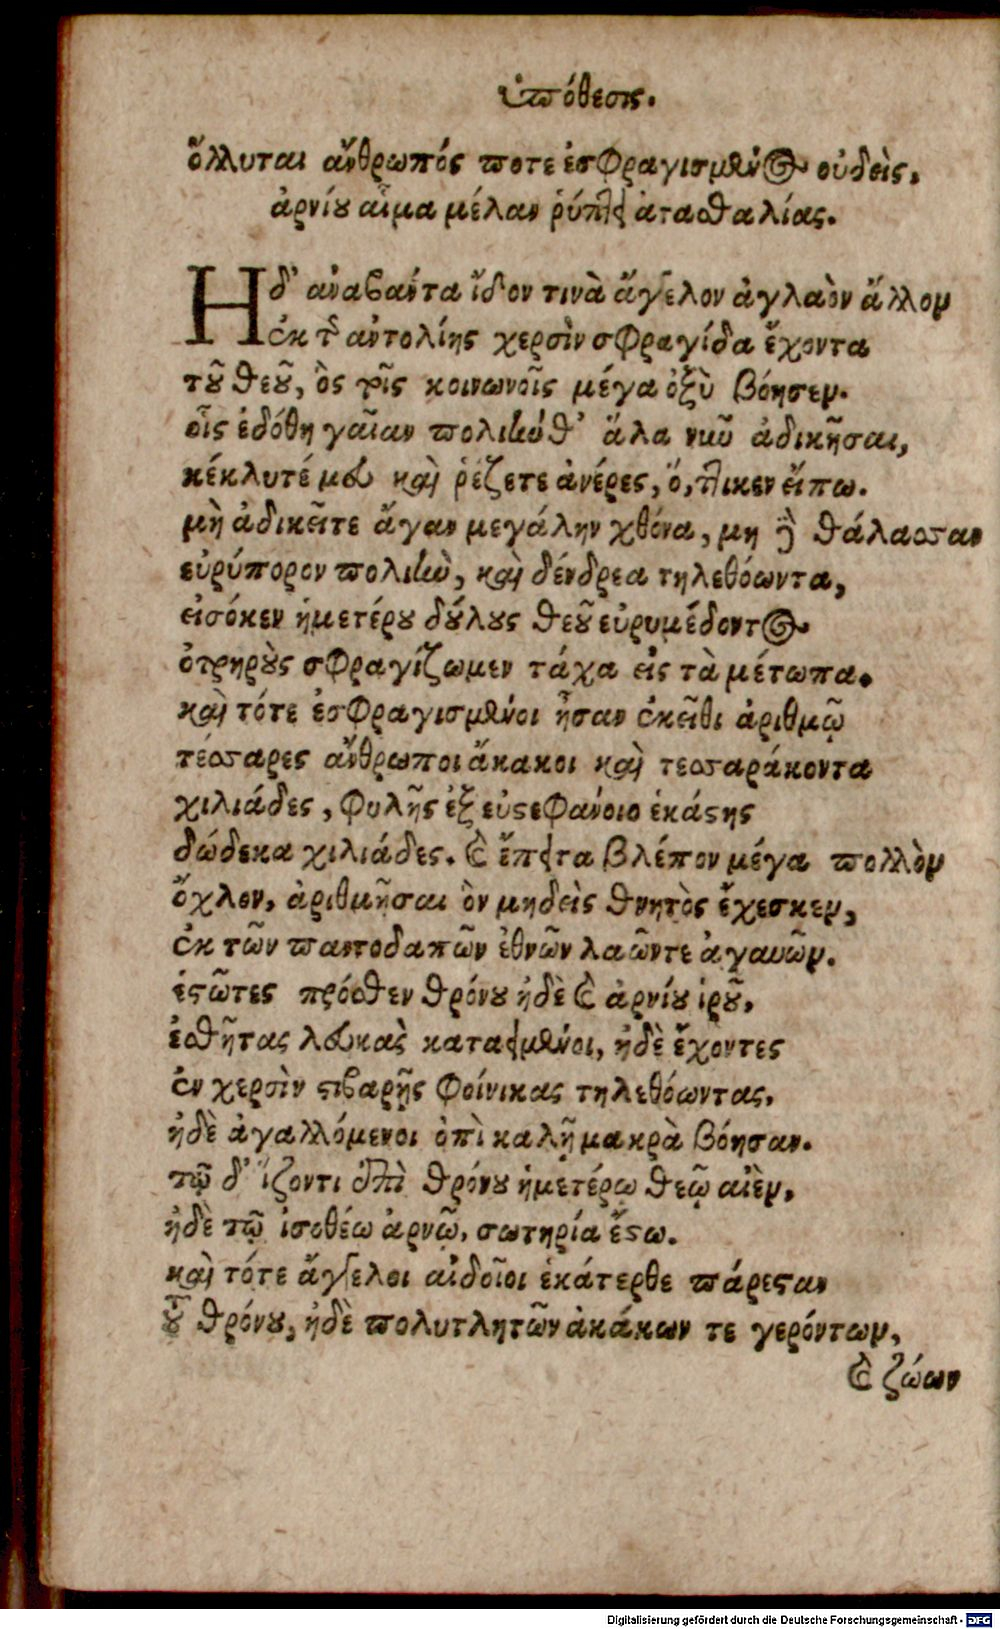 ὑπόθεσις.
ὄλλυται ἄνθρωπός ποτε ἐσφραγισμένος οὐδεὶς,
ἀρνίου αἷμα μέλαν ῥύπτει ἀτασθαλίας.
Ηδ' ἀναβαίντα ἴδον τινὰ ἄγγελον ἀγλαὸν ἄλλον
ἐκ τῆς ἀντολίης χερσὶν σφραγίδα ἔχοντα
τοῦ θεοῦ, ὃς τρῖς κοινωνοῖς μέγα ὀξὺ βόησεν.
οἷς ἐδόθη γαῖαν πολιήν θ' ἅλα νῦν ἀδικῆσαι,
κέκλυτέ μευ καὶ ῥέζετε ἀνέρες, ὅ, τι κεν εἴπω.
μὴ ἀδικεῖτε ἄγαν μεγάλην χθόνα, μη δὲ θάλασσαν
εὐρύπορον πολιὴν, καὶ δένδρεα τηλεθόωντα,
εἰσόκεν ἡμετέρου δούλους θεοῦ εὐρυμέδοντος
ὀτρηροὺς σφραγίζωμεν τάχα εἰς τὰ μέτωπα.
καὶ τότε ἐσφραγισμένοι ἦσαν ἐκεῖθι ἀριθμῷ
τέσσαρες ἄνθρωποι ἄκακοι καὶ τεσσαράκοντα
χιλιάδες, φυλῆς ἐξ εὐστεφάνοιο ἑκάστης
δώδεκα χιλιάδες. καὶ ἔπειτα βλέπον μέγα πολλὸν
ὄχλον, ἀριθμῆσαι ὃν μηδεὶς θνητὸς ἔχεσκεν,
ἐκ τῶν παντοδαπῶν ἐθνῶν λαῶντε ἀγαυῶν.
ἑστῶτες πρόσθεν θρόνου ἠδὲ καὶ ἀρνίου ἱροῦ,
ἐσθῆτας λευκὰς καταειμένοι, ἠδὲ ἔχοντες
ἐν χερσὶν στιβαρῇς φοίνικας τηλεθόωντας,
ἠδὲ ἀγαλλόμενοι ὀπὶ καλῇ μακρὰ βόησαν.
τῷ δ' ἵζοντι ἐπὶ θρόνου ἡμετέρῳ θεῷ αἰὲν,
ἠδὲ τῷ ἰσοθέῳ ἀρνῷ, σωτηρία ἔστω.
καὶ τότε ἄγγελοι αἰδοῖοι ἑκάτερθε πάρεσταν
τοῦ θρόνου, ἠδὲ πολυτλητῶν ἀκάκων τε γερόντων,
καὶ ζώων
Digitalisierung gefördert durch die Deutsche Forschungsgemeinschaft - DFG